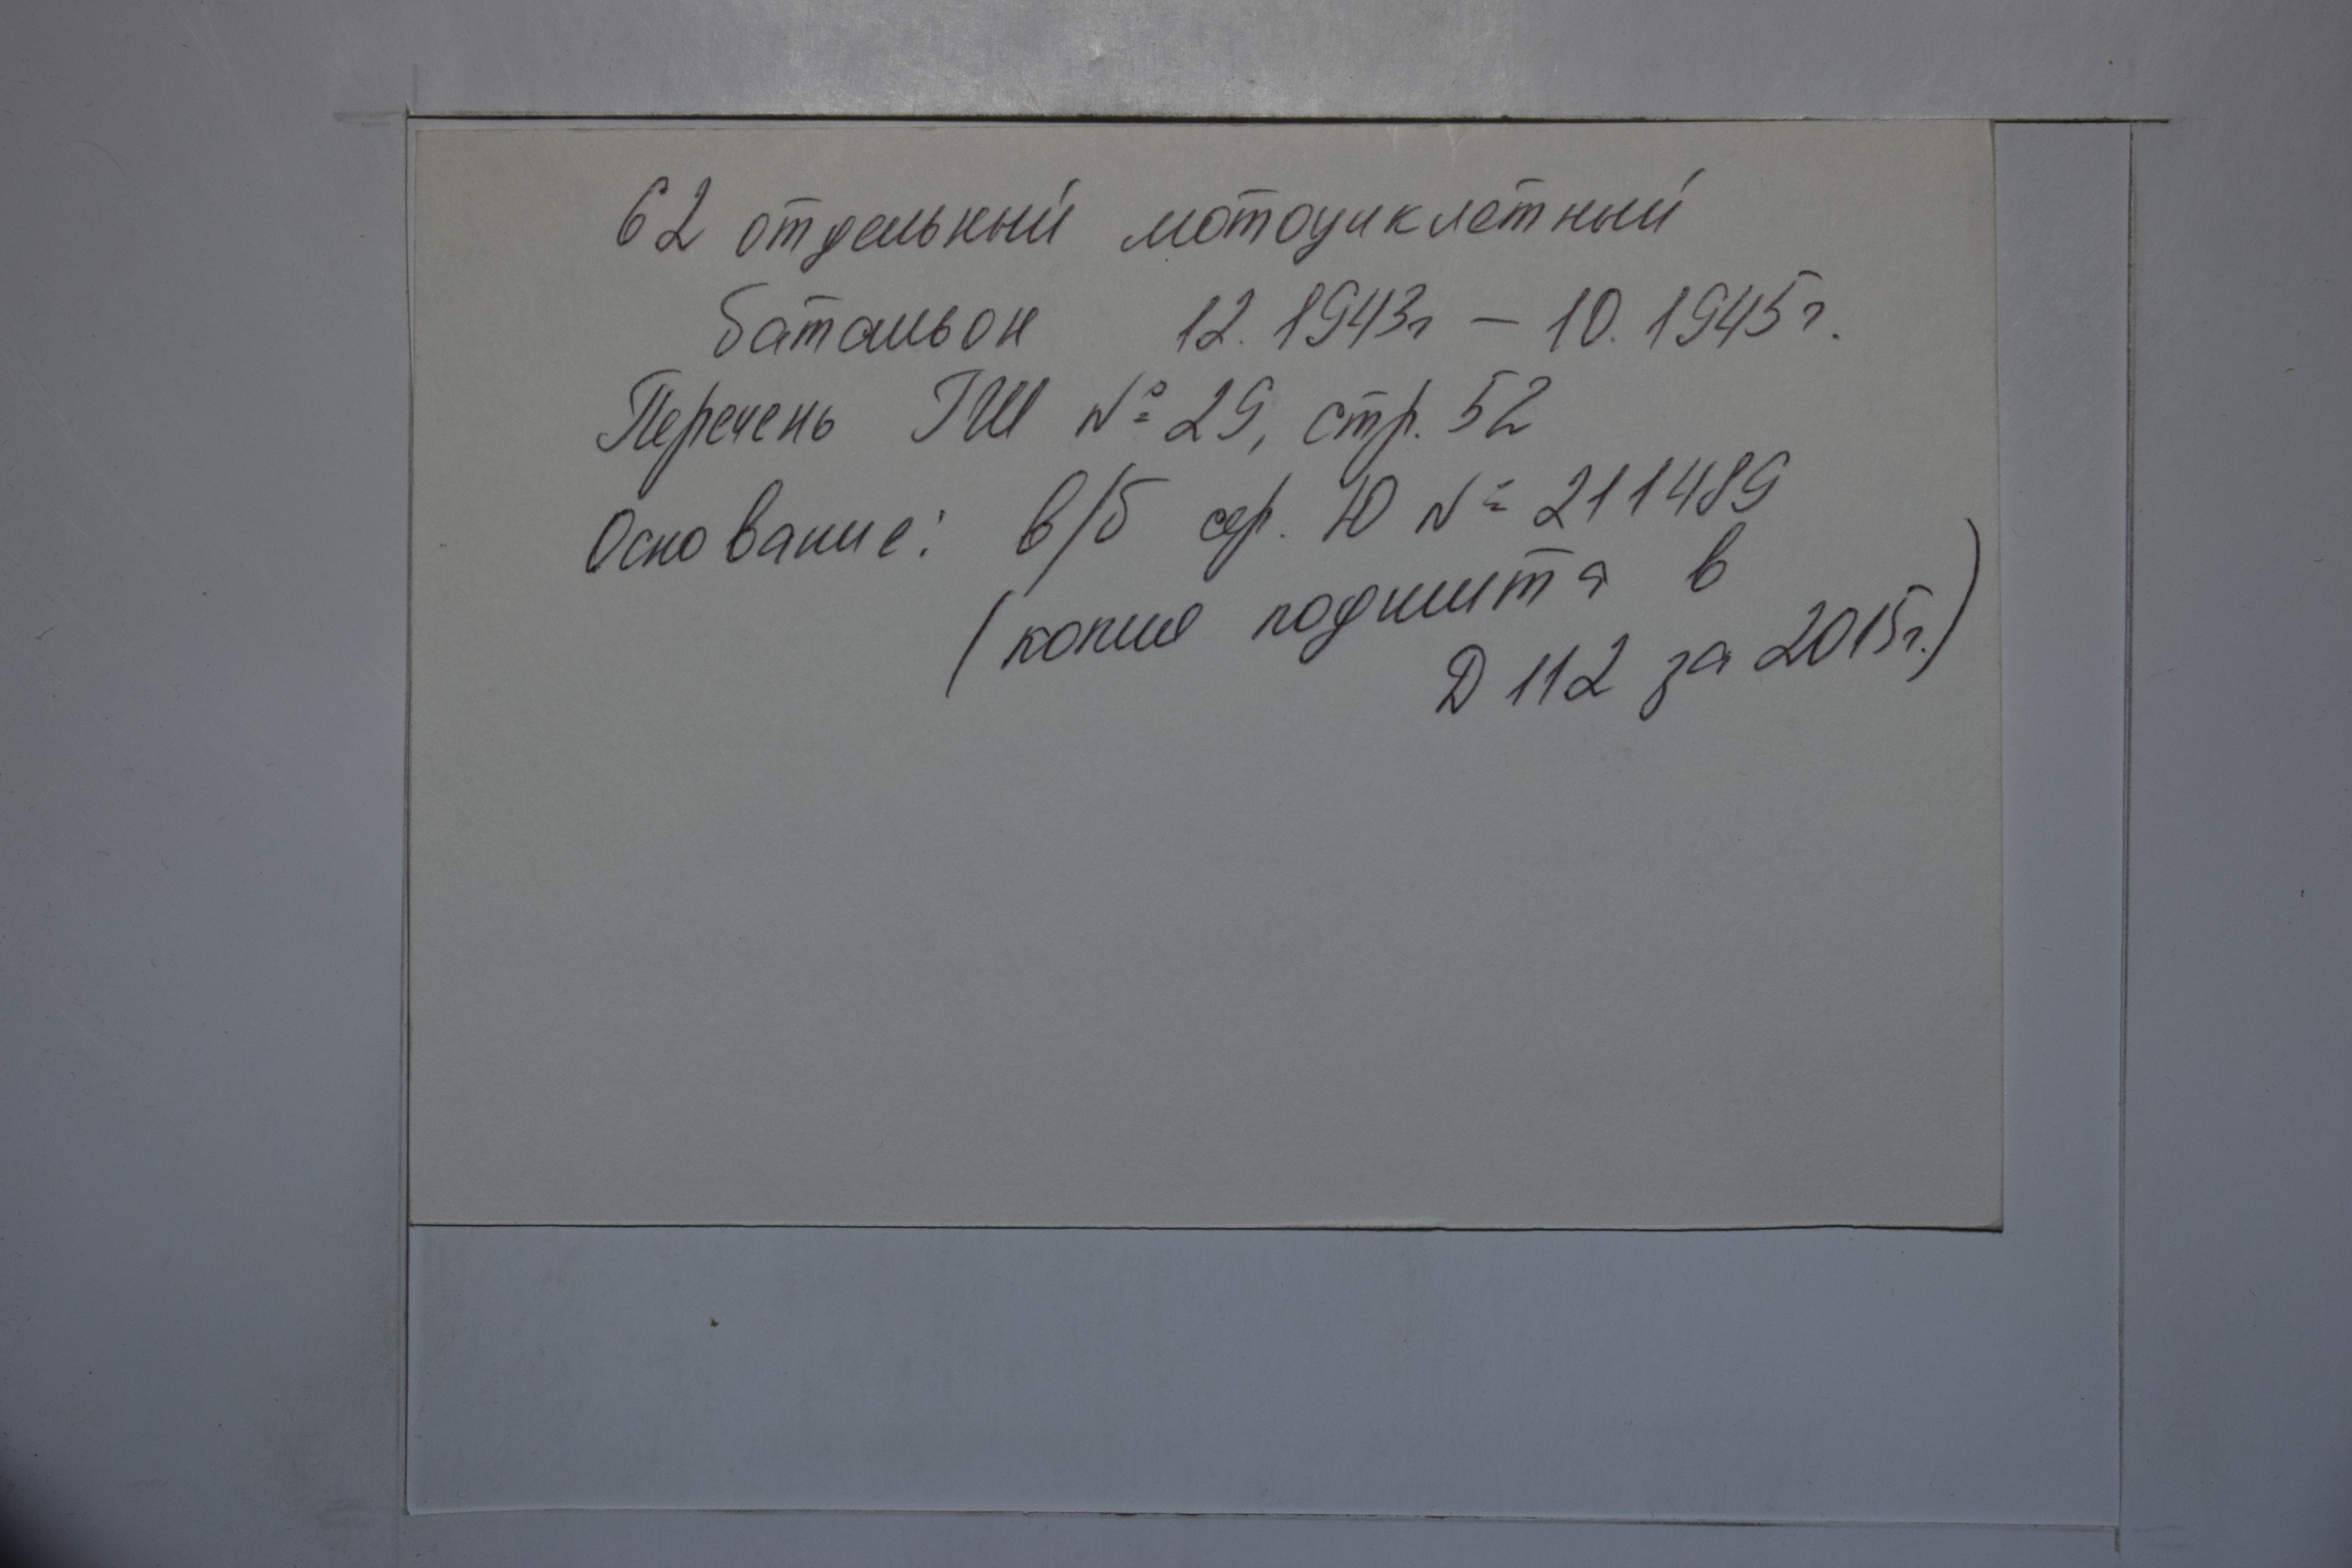 62 отдельный мотоциклетный
батальон 12.1943г – 10.1945г.
Перечень ГШ № 29, стр. 52
Основание: в/б сер. Ю № 211489
(копия подшита в
Д 112 за 2015г.)